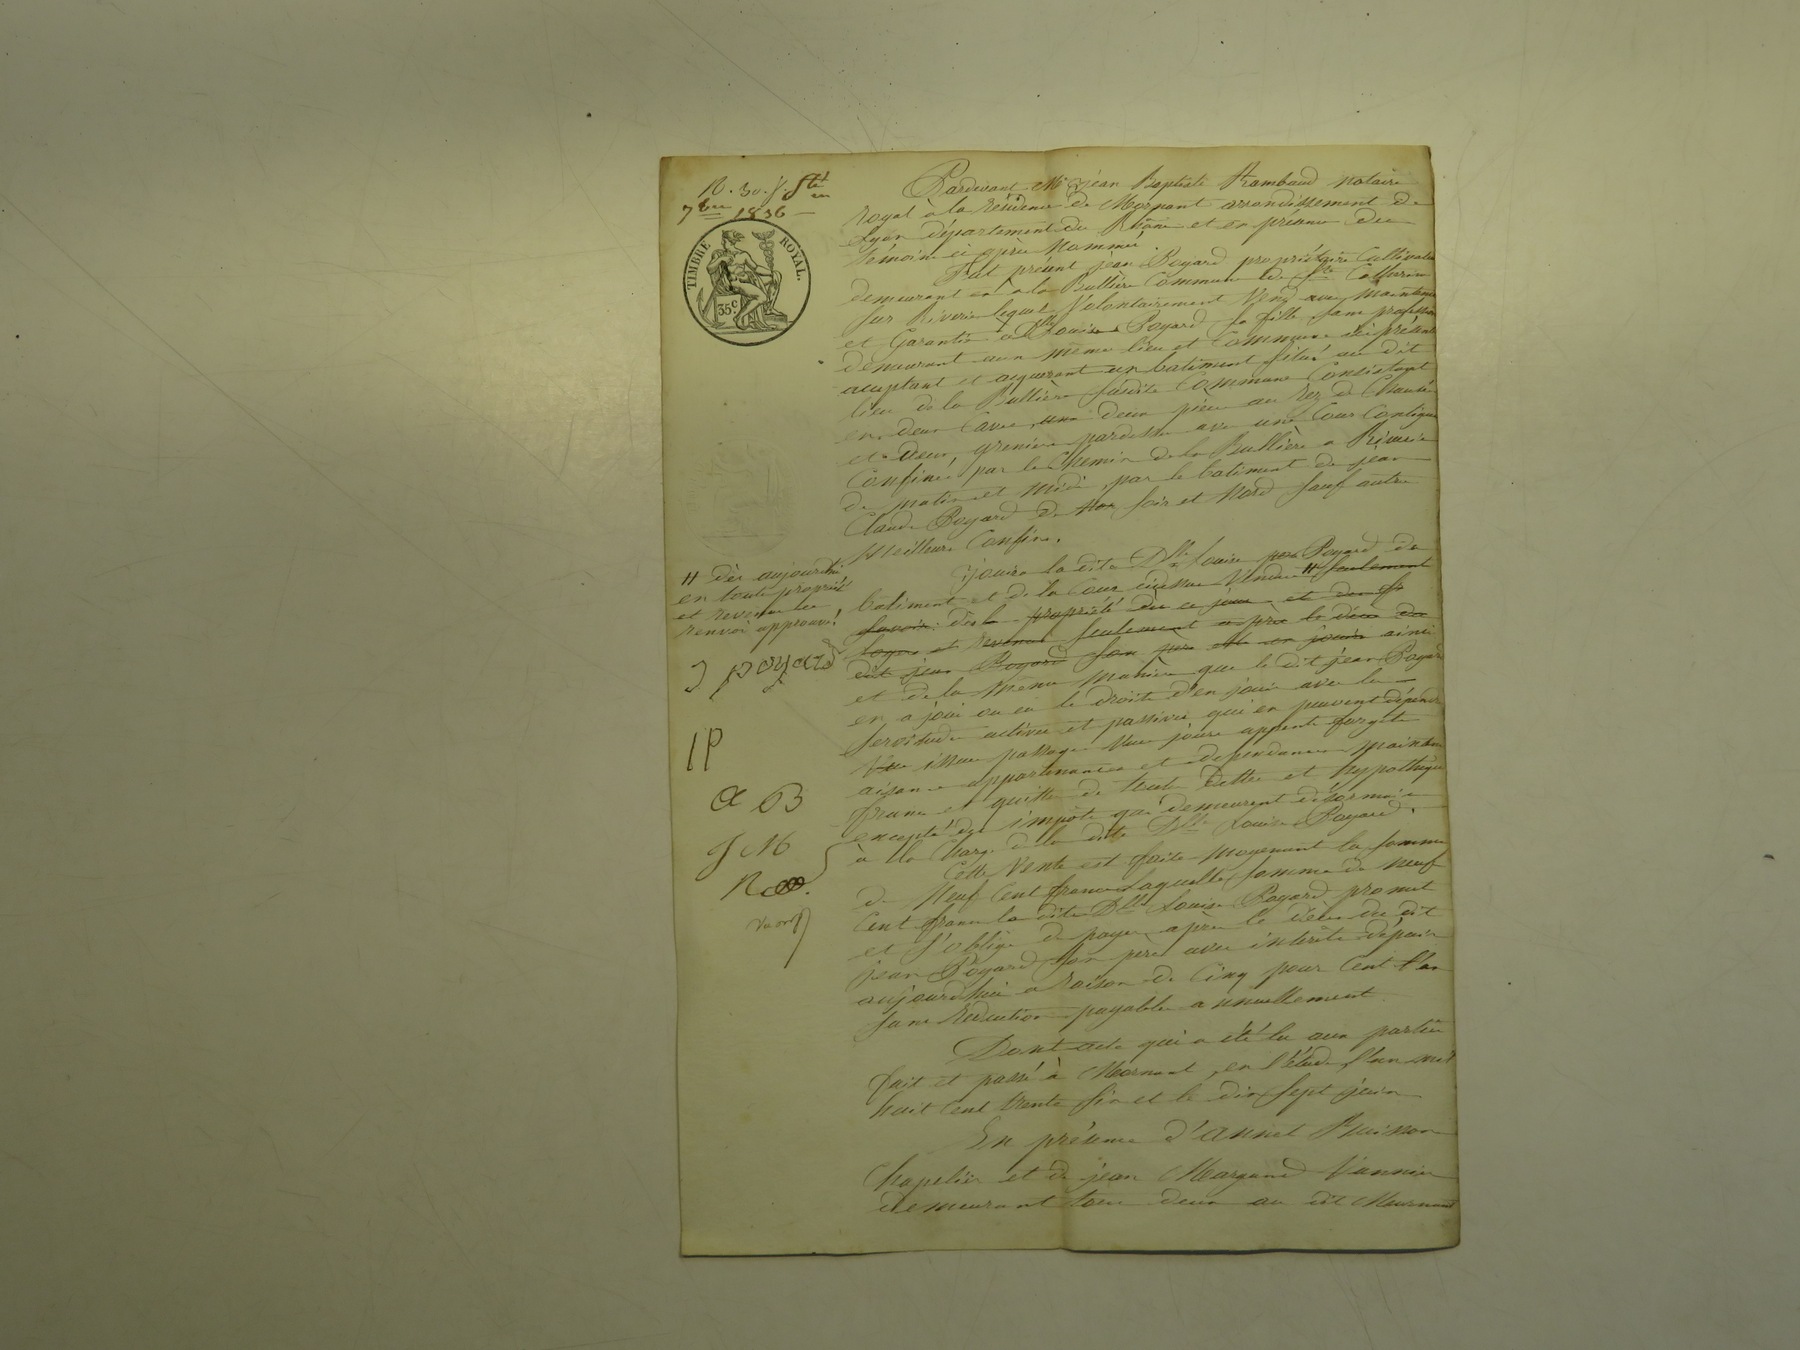 R. 30. f. Sté
en
7bre 1836
TIMBRE ROYAL.
35c
Pardevant Me jean Baptiste Rambaud notaire
royal à la résidence de Mornant arrondissement de
Lyon département du Rhône et en présence des
témoins ci après nommés.
Fut présent jean Poyard propriétaire Cultivateur
demeurant en à la Bullière Commune de Ste Catherine
sur Riverie lequel Volontairement Vend avec maintenue
et Garantie à Dlle Louise Poyard sa fille sans profession
demeurant au même lieu et Commune ici présente
acceptant et acquerant un batiment situé au dit
lieu de la Bullière susdite Commune Consistant
en deux Caves, une deux pièces au Rez de Chaussée
et deux greniers pardessus avec une Cour Contigue
Confinés par le Chemin de la Bullière a Riverie
de matin et midi, par le batiment de jean
Claude Poyard de soir et Nord sauf autres
Meilleurs Confins.
jouira la dite Dlle Louise Poyard du
batiment et de la Cour cidessus Vendus # seulement
savoir: dès la propriété dès ce jour et des
et revenus seulement après le décès du
dit jean Poyard son père et en jouir ainsi
et de la même manière que le dit jean Poyard
en a joui ou eu le droit d'en jouir avec les
servitudes actives et passives qui en peuvent dépendre
Vue issues passages Vues jours appents forgets
aisances appartenances et dépendances maintenus
francs et quittes de toute dettes et hypothèques
excepté des impôts qui demeurent désormais
à la charge de la dite Dlle Louise Poyard.
Cette Vente est faite moyenant la somme
de Neuf Cent francs Laquelle somme de neuf
Cent francs la dite Dlle Louise Poyard promet
et s'oblige de payer après le décès du dit
jean Poyard son père avec intérêts dépuis
aujourdhui a raison de Cinq pour Cent l'an
sans Réduction payables annuellement
Dont acte qui a été lu aux parties
fait et passé à Mornant, en l'étude, l'an mil
huit Cent trente six et le dix sept juin
En présence d'annet Buisson
Chapelier et de jean Margand Vannier
demeurant tous deux au dit Mornant
# dès aujourdhui
en toute propriété
et revenus
renvoi approuvé
J poyard
l P
a B
J M
R